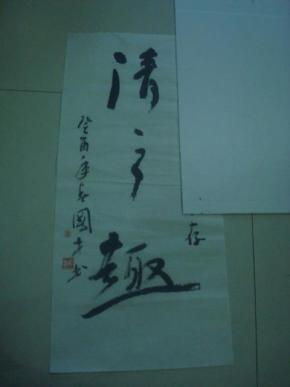 存
清之趣
癸酉年 國才书